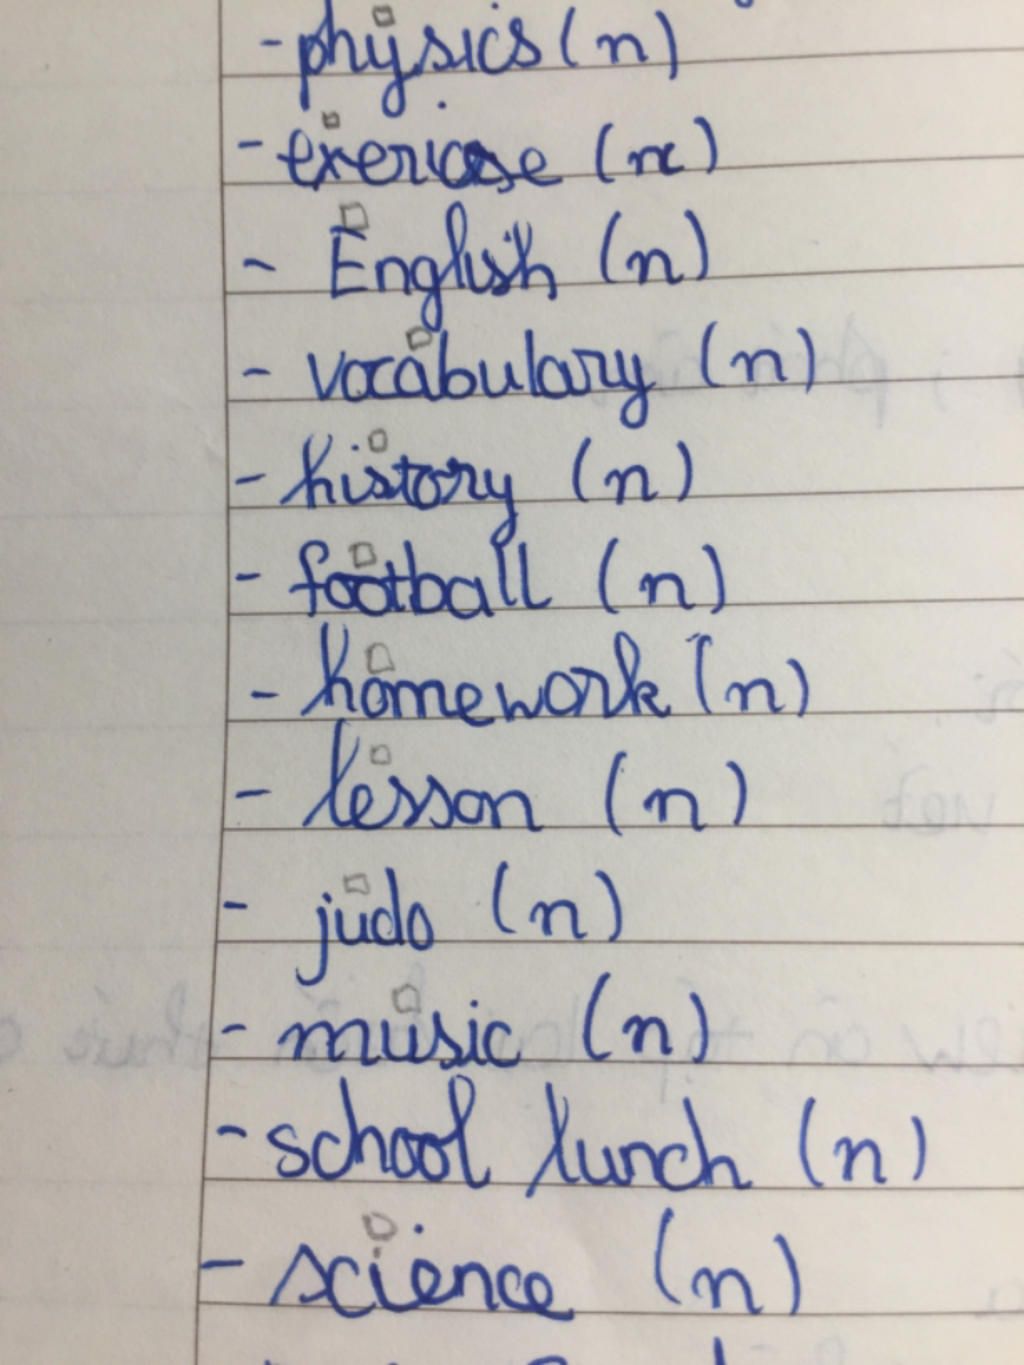 - physics (n)
- exericse (n)
- English (n)
- vocabulary (n)
- history (n)
- football (n)
- homework (n)
- lesson (n)
- judo (n)
- music (n)
- school lunch (n)
- science (n)